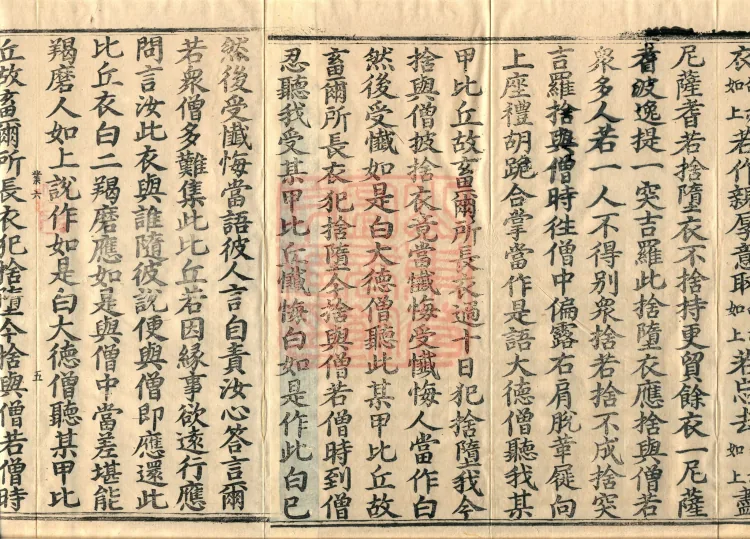 衣如上若作親厚意取如上若忘去如上盡
尼薩耆若捨墮衣不捨持更貿餘衣一尼薩
耆波逸提一突吉羅此捨墮衣應捨與僧若
衆多人若一人不得別衆捨若捨不成捨突
吉羅捨與僧時往僧中偏露右肩脫革屣向
上座禮胡跪合掌當作是語大德僧聽我某
甲比丘故畜爾所長衣過十日犯捨墮我今
捨與僧披捨衣竟當懺悔受懺悔人當作白
然後受懺如是白大德僧聽此某甲比丘故
畜爾所長衣犯捨墮今捨與僧若僧時到僧
忍聽我受某甲比丘懺悔白如是作此白已
然後受懺悔當語彼人言自責汝心答言爾
若衆僧多難集此比丘若因緣事欲遠行應
問言汝此衣與誰隨彼說便與僧即應還此
比丘衣白二羯磨應如是與僧中當差堪能
羯磨人如上說作如是白大德僧聽某甲比
業六 五
丘故畜爾所長衣犯捨墮今捨與僧若僧時